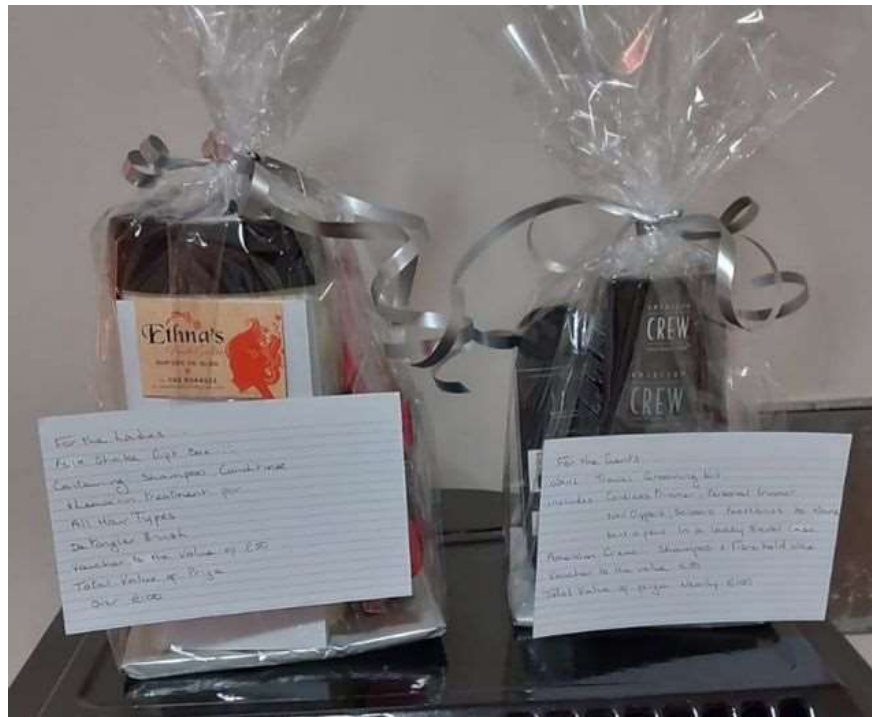 Ethna's
For the Ladies
Milk Shake Gift Box
Containing Shampoo Conditioner
+ Leave in treatment for
All Hair Types
Detangler Brush
Voucher to the value of €50
Total Value of Prize
Over €100
AMERICAN
CREW
AMERICAN
CREW
For the Gents
Wahl Travel Grooming Kit
includes Cordless Trimmer, Personal Trimmer
Nail Clippers, Scissors
in a handy travel case
American Crew Shampoo + Firm hold
Voucher to the value
Total Value of prize Nearly €100